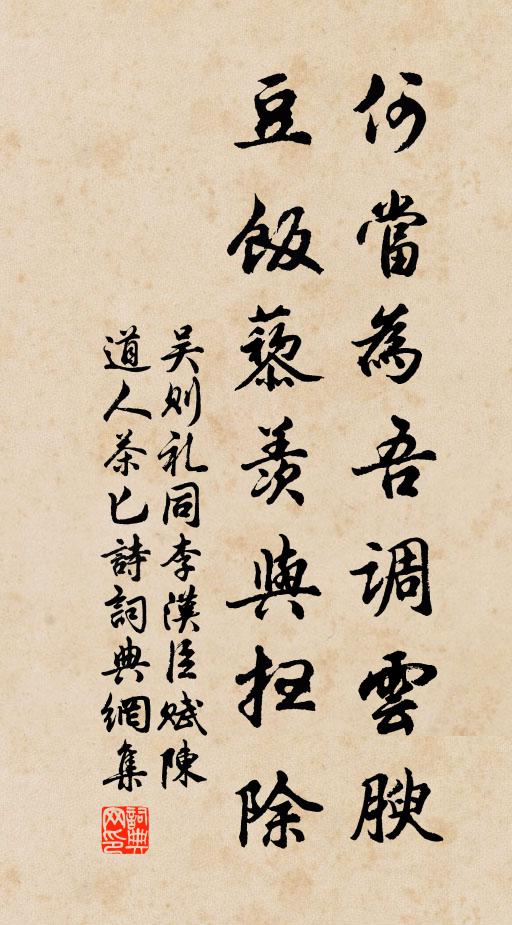 何當為吾調雲腴
豆飯藜羹與掃除
吳則礼同李漢臣賦陳
道人茶匕詩詞典網集
詞典网印